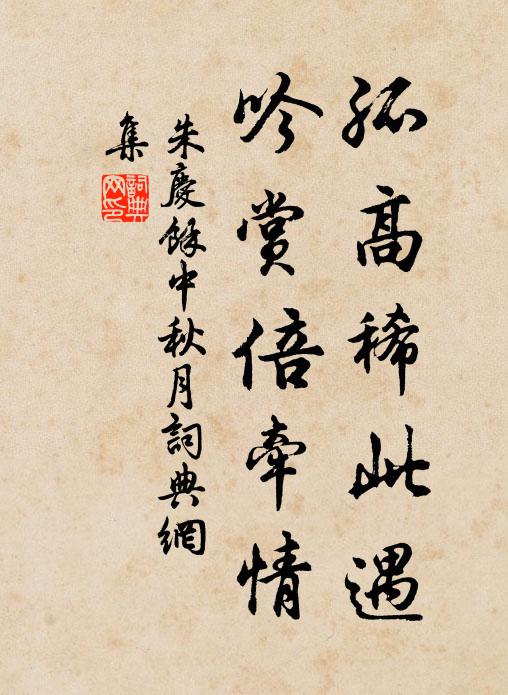 孤高稀此遇
吟賞倍牽情
朱慶餘中秋月詞典網
集
詞典
网印